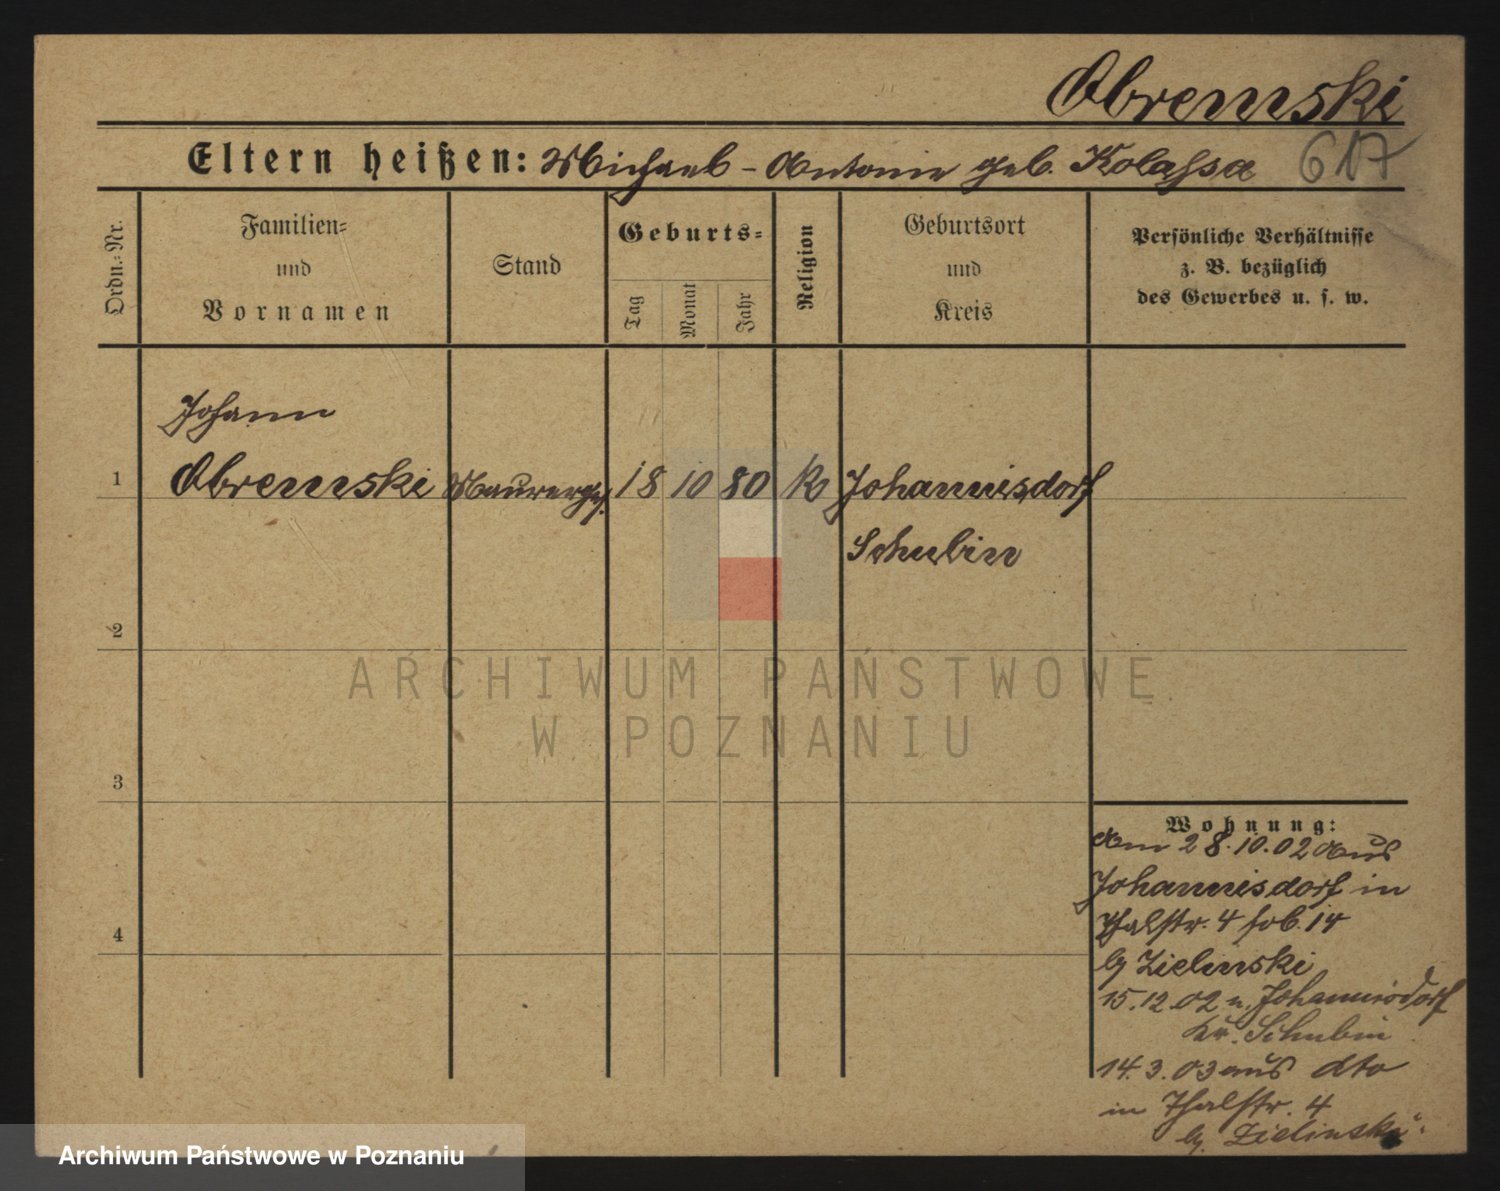 Obremski
Eltern heißen: Michael - Antonie geb. Kolassa 617
Ordn.-Nr.
Familien-
und
Vornamen
Stand
Geburts-
Tag
Monat
Jahr
Religion
Geburtsort
und
Kreis
Persönliche Verhältnisse
z. B. bezüglich
des Gewerbes u. s. w.
Johann
1 Obremski Maurerges. 18 10 80 K Johannisdorf
Schubin
2
ARCHIWUM PAŃSTWOWE
W POZNANIU
3
Wohnung:
Am 28.10.02 aus
Johannisdorf in
4 Thalstr. 4 14
b/ Zielinski
15.12.02 n. Johannisdorf
Kr. Schubin
14.3.03 aus dto
in Thalstr. 4
b/ Zielinski
Archiwum Państwowe w Poznaniu